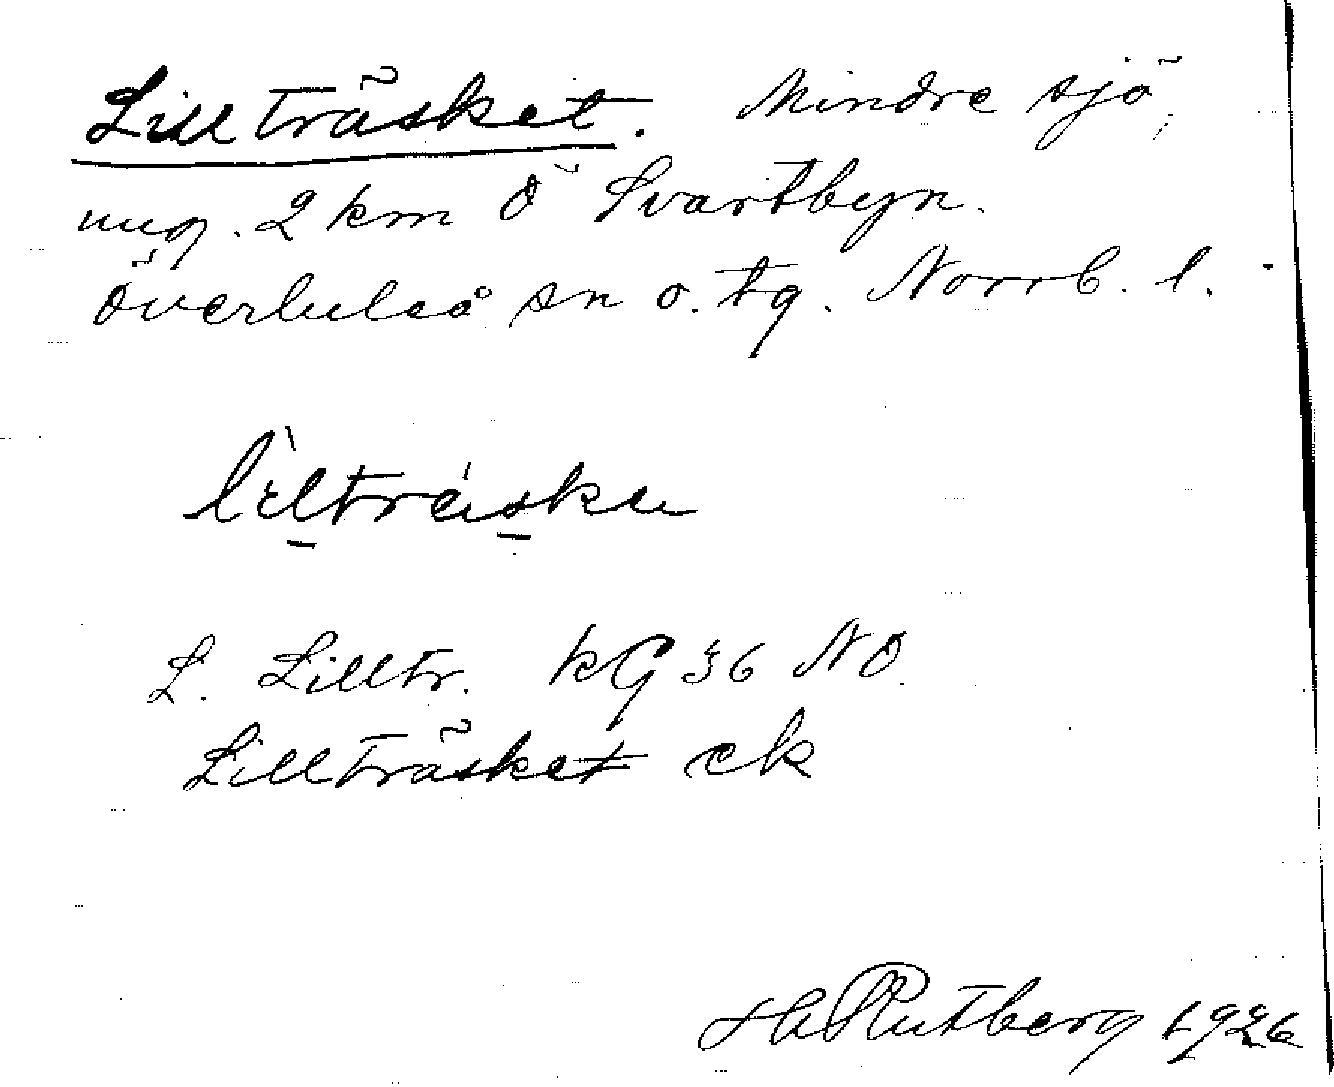 Lillträsket. Mindre sjö,
ung. 2 km Ö Svartbyn.
Överluleå sn o. tg. Norrb. l.
lìlträ́sku
L. Lilltr. kG 36 NO.
Lillträsket ek
Rutberg 1926